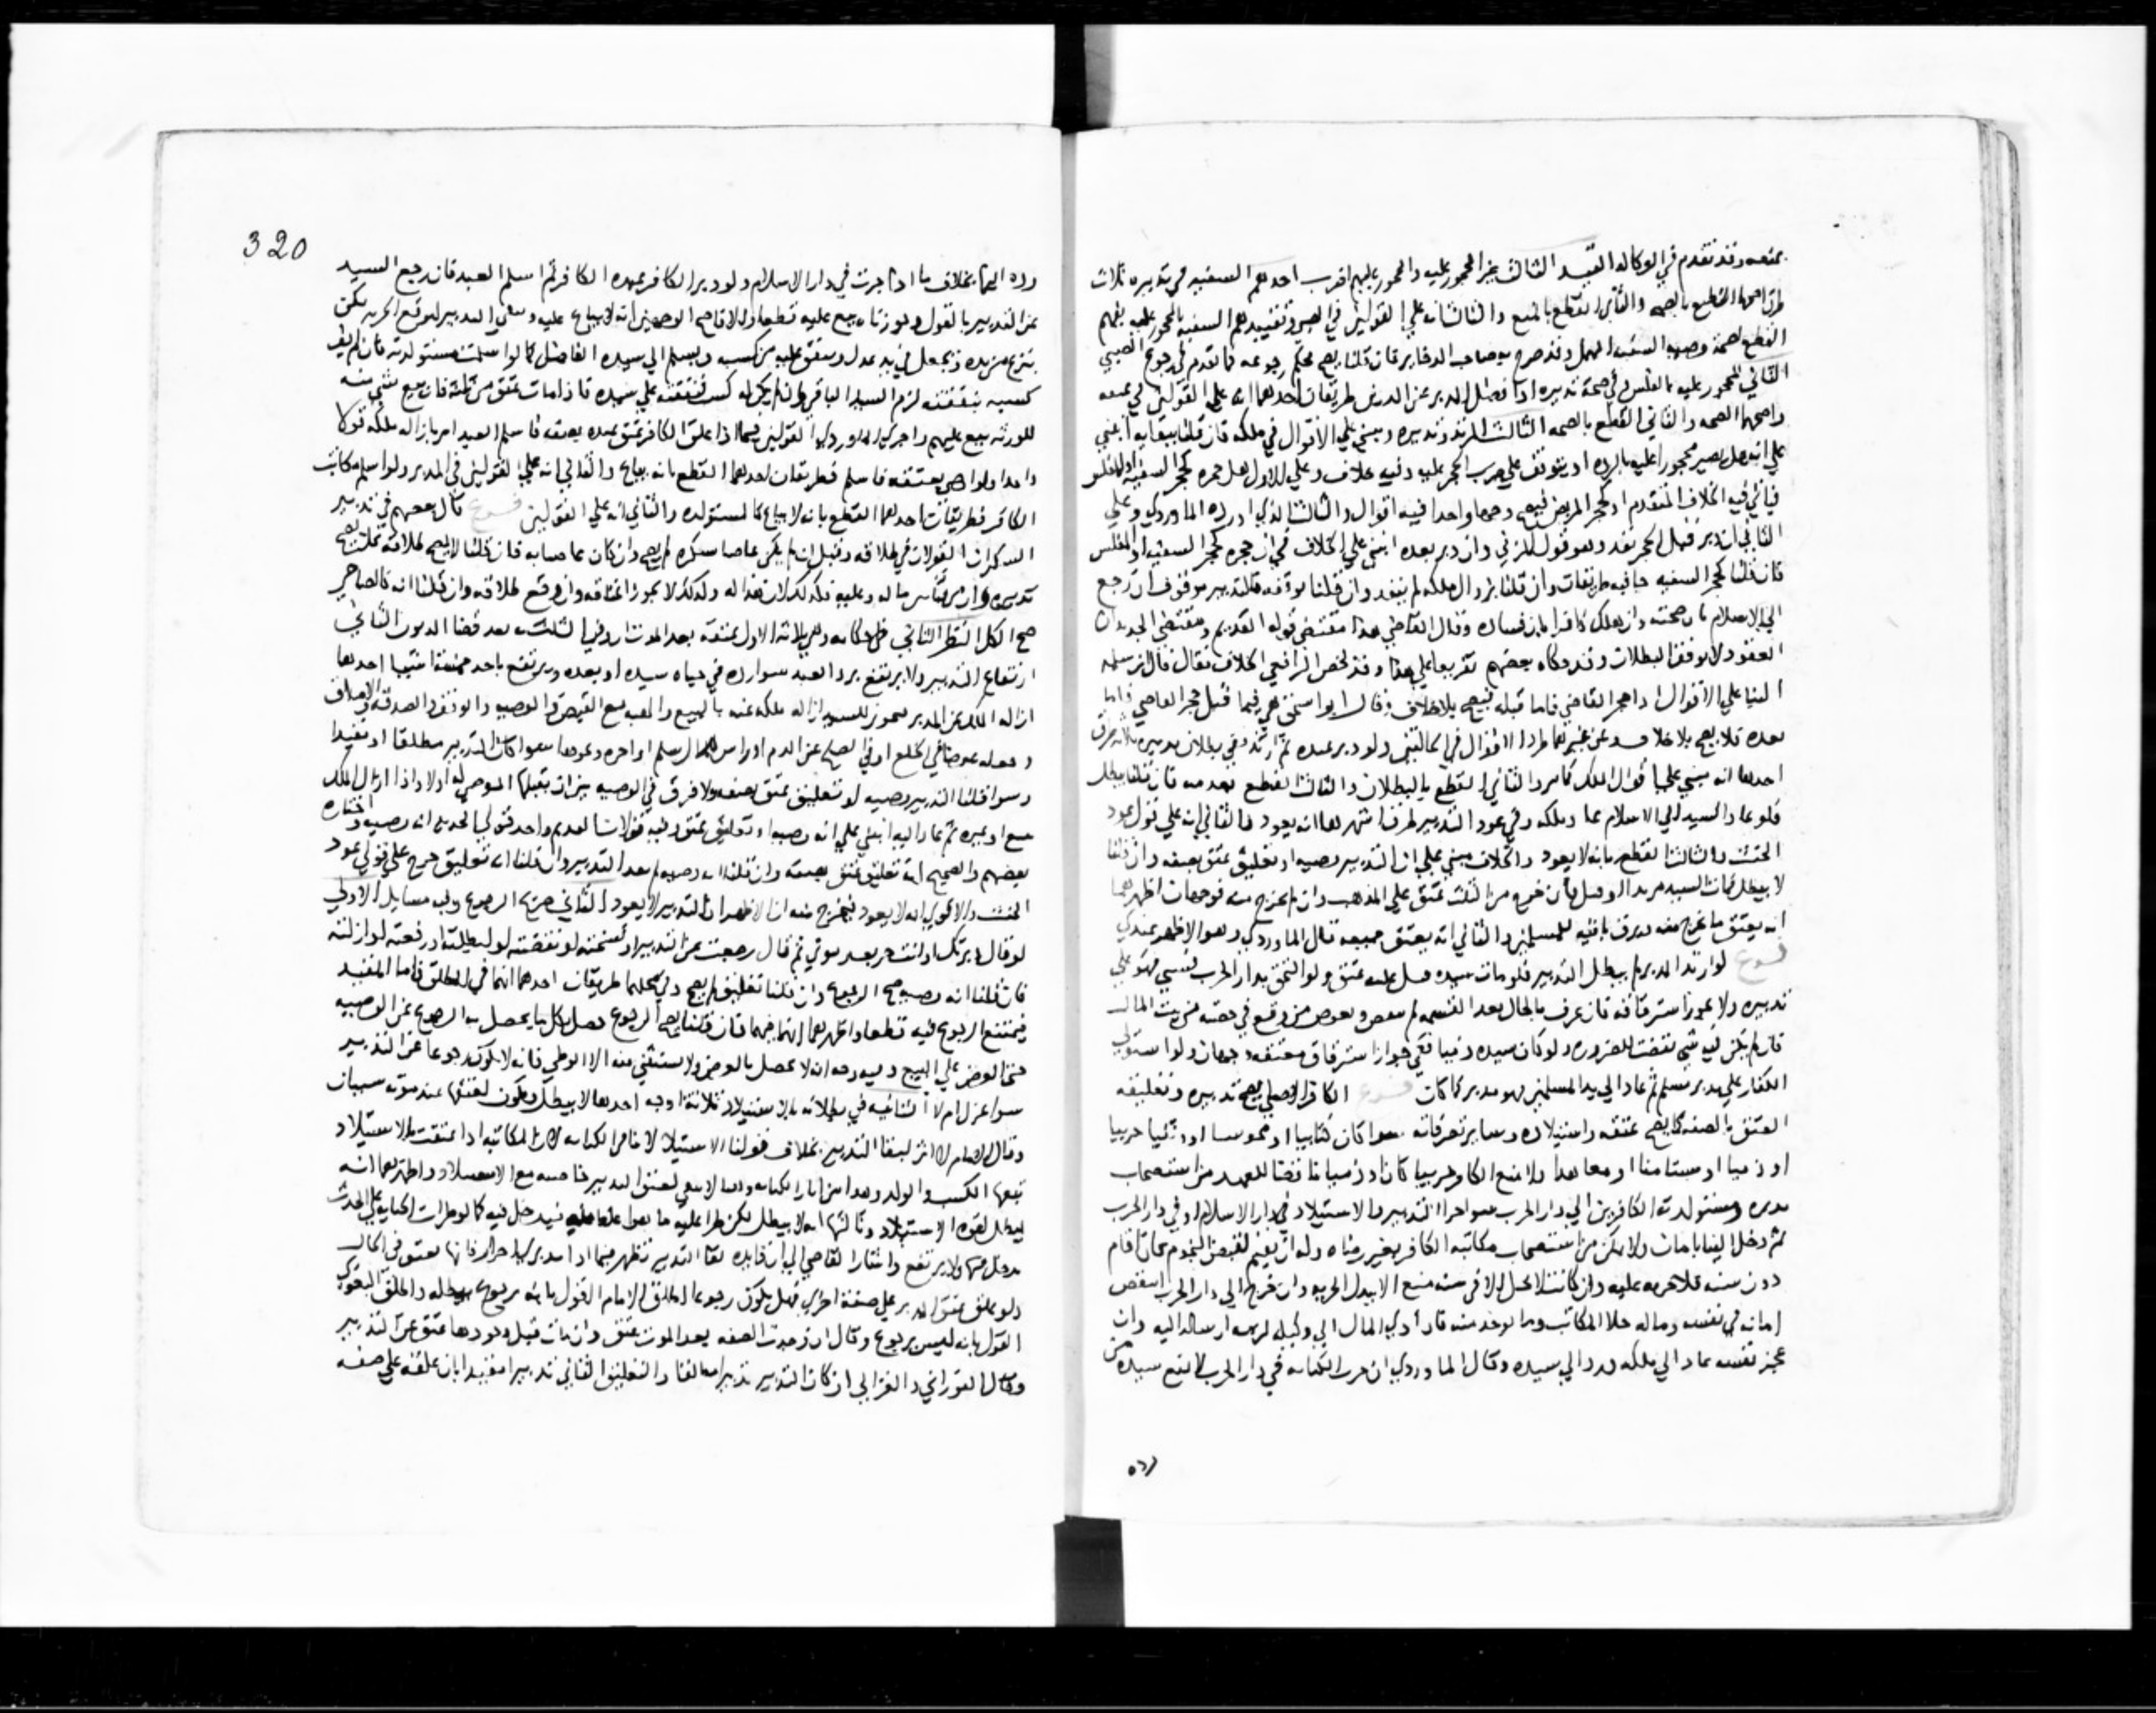 بمنعه وقد تقدم في الوكالة القيد الثالث غير المحجور عليه والمحجور عليهم اضرب احدهم السفيه في تدبيره ثلاث
طرق اصحها القطع بالصحة والثاني القطع بالمنع والثالث انه علي القولين في الصبي وتقييدهم السفيه بالمحجور عليه يفهم
القطع بصحة وصية السفيه المهمل وقد صرح به صاحب الدخاير فان قلنا يصح فحكم رجوعه كما تقدم في رجوع الصبي
الثاني المحجور عليه بالفلس في صحة تدبيره اذا فضل المدبر عن الدين طريقان احدهما انه علي القولين في عتقه
واصحهما الصحة والثاني القطع بالصحة الثالث المرتد وتدبيره ينبني علي الاقوال في ملكه فان قلنا ببقايه انبني
علي انه هل يصير محجورا عليه بالردة او يتوقف علي ضرب الحجر عليه وفيه خلاف وعلي الاول هل حجره كحجر السفيه او المفلس
فيأتي فيه الخلاف المتقدم او كحجر المريض فيصح وجها واحدا فيه اقوال والثالث الذي اورده الماوردي وعلي
الثاني ان دبر قبل الحجر نفذ وهو قول المزني وان دبر بعده انبني علي الخلاف في ان حجره كحجر السفيه او المفلس
فان قلنا كحجر السفيه جا فيه طريقان وان قلنا بزوال ملكه لم ينفذ وان قلنا بوقفه فالتدبير موقوف ان رجع
الي الاسلام بان صحته وان هلك كافرا بان فساده وقال القاضي هذا مقتضي قوله القديم ومقتضي الجديد ان
العقود لا توقف البطلان وقد حكاه بعضهم تفريعا علي هذا وقد لخص الرافعي الخلاف فقال قال ابن سلمة
البنا علي الاقوال اذا حجر القاضي فاما قبله فيصح بلا خلاف وقال ابو اسحق هي فيما قبل حجر القاضي فاما
بعده فلا يصح بلا خلاف وعن غيرهما طرد الاقوال في الحالتين ولو دبر عبده ثم ارتد ففي بطلان تدبيره ثلاثة طرق
احدها انه يبني علي اقوال الملك كما مر والثاني القطع بالبطلان والثالث القطع بعدمه فان قلنا يبطل
فلو عاد السيد الي الاسلام عاد ملكه وفي عود التدبير طرق اشهرها انه يعود والثاني انه علي قولي عود
الحنث والثالث القطع بانه لا يعود والخلاف مبني علي ان التدبير وصية او تعليق عتق بصفة وان قلنا
لا يبطل فمات السيد مرتدا او قتل فان خرج من الثلث عتق علي المذهب وان لم يخرج منه فوجهان اظهرهما
انه يعتق ما يخرج منه ويرق باقيه للمسلمين والثاني انه يعتق جميعه قال الماوردي وهو الاظهر عندي
فرع لو ارتد المدبر لم يبطل التدبير فلو مات سيده قبل قتله عتق ولو التحق بدار الحرب فسبي فهو علي
تدبيره ولا يجوز استرقاقه فان عرف بالحال بعد القسمة لم ... ويعوض من وقع في حصته من بيت المال
فان لم يكن فيه شي نقضت للضرورة ولو كان سيده ذميا ففي جواز استرقاق معتقه وجهان ولو استولي
الكفار علي مدبر مسلم ثم عاد الي يد المسلمين فهو مدبر كما كان فرع الكافر الاصلي يصح تدبيره وتعليقه
العتق بالصفة كما يصح عتقه واستيلاده وساير تصرفاته سوا كان كتابيا او مجوسيا او وثنيا حربيا
او ذميا او مستامنا او معاهدا ولا يمنع الكافر حربيا كان او ذميا ناقضا للعهد من استصحاب
مدبره ومستولدته الكافرين الي دار الحرب سوا جرا التدبير والاستيلاد في دار الاسلام او في دار الحرب
ثم دخل الينا بامان ولا يمكن من استصحاب مكاتبه الكافر بغير رضاه وله ان يقيم لقبض النجوم فان اقام
دون سنة فلا جزية عليه وان كانت لا تحل الا في سنة منع الا ببذل الجزية وان خرج الي دار الحرب انتقض
امانه في نفسه وماله خلا المكاتب وما يوخذ منه فاذا ادي المال الي وكيله لزمه ارساله اليه وان
عجز نفسه عاد الي ملكه ورد الي سيده وقال الماوردي ان جرت الكتابة في دار الحرب لا نمنع سيده من
١٥٥
320
رده اليها بخلاف ما اذا جرت في دار الاسلام ولو دبر الكافر عبده الكافر ثم اسلم العبد فان رجع السيد
عن التدبير بالقول وجوزناه بيع عليه قطعا والا فاصح الوجهين انه لا يباع عليه ويبقي التدبير لتوقع الحرية لكن
ينزع من يده ويجعل في يد عدل وينفق عليه من كسبه ويسلم الي سيده الفاضل كما لو اسلمت مستولدته فان لم يف
كسبه بنفقته لزم السيد الباقي وان لم يكن له كسب فنفقته علي سيده فاذا مات عتق من ثلثه فان بقي شي منه
للورثة بيع عليهم واجري الماوردي القولين فيما اذا علق الكافر عتق عبده بصفة فاسلم العبد امر بازالة ملكه قولا
واحدا ولو اوصي بعتقه فاسلم فطريقان احدهما القطع بانه يباع والثاني انه علي القولين في المدبر ولو اسلم مكاتب
الكافر فطريقان احدهما القطع بانه لا يباع كالمستولدة والثاني انه علي القولين فرع قال بعضهم في تدبير
السكران القولان في طلاقه وقيل ان لم يكن عاصيا بسكره لم يصح وان كان عاصيا به فان قلنا لا يصح طلاقه فهل يصح
تدبيره ... ماله وعليه فكذلك لان هذا له وكذلك لا يجوز اعتاقه وان وقع طلاقه وان قلنا انه كالصاحي
صح الكل النظر الثاني في احكامه وهي ثلاثة الاول عتقه بعد الموت اذا وفي الثلث به بعد قضا الديون الثاني
ارتفاع التدبير ولا يرتفع برد العبد سوا رده في حياة سيده او بعده ويرتفع باحد خمسة اشيا احدها
ازالة الملك عن المدبر فيجوز للسيد ازالة ملكه عنه بالبيع والهبة مع القبض والوصية والوقف والصدقة والاصداق
وجعله عوضا في الخلع او في الصلح عن الدم او راس مال سلم او اجرة ونحوها سوا كان التدبير مطلقا او مقيدا
وسوا قلنا التدبير وصية او تعليق عتق بصفة ولا فرق في الوصية بين ان يقبلها الموصي له او لا واذا ازال الملك
ببيع او غيره ثم عاد اليه انبني علي انه وصية او تعليق عتق وفيه قولان القديم واحد قولي الجديد انه وصية واختاره
بعضهم والصحيح انه تعليق عتق بصفة وان قلنا انه وصية لم يعد التدبير وان قلنا انه تعليق خرج علي قولي عود
الحنث والاقوي انه لا يعود فيخرج منه ان الاظهر ان التدبير لا يعود الثاني صريح الرجوع وفيه مسايل الاولي
لو قال دبرتك او انت حر بعد موتي ثم قال رجعت عن التدبير او فسخته او نقضته او ابطلته او رفعته او ازلته
فان قلنا انه وصية صح الرجوع وان قلنا تعليق لم يصح وفي محلهما طريقان احدهما انهما في المطلق فاما المقيد
فيمتنع الرجوع فيه قطعا واظهرهما انهما فيهما فان قلنا يصح الرجوع حصل بكل ما يحصل به الرجوع عن الوصية
حتي العرض علي البيع وفيه وجه انه لا يحصل بالعرض ولا يستثني منه الا الوطي فانه لا يكون رجوعا عن التدبير
سوا عزل ام لا الثانية في بطلانه بالاستيلاد ثلاثة اوجه احدها لا يبطل ويكون لعتقها عند موته سببان
وقال الامام لا اثر لبقا التدبير بخلاف قولنا الاستيلاد لا ينافي الكتابة لان المكاتبة اذا عتقت بالاستيلاد
تبعها الكسب والولد وهذا من اثار الكتابة ... واظهرهما انه
يبطل لقوة الاستيلاد وثالثها انه لا يبطل لكن طرا عليه ما هو اعلا منه فيدخل فيه كما لو طرات الجنابة علي الحدث
يدخل فيها ولا يرتفع واشار القاضي الي ان فايدة بقا التدبير تظهر فيما اذا ... فانها تعتق في الحال
ولو علق عتق المدبر علي صفة اخري فهل يكون رجوعا اطلق الامام القول بانه رجوع يبطله واطلق البغوي
القول بانه ليس برجوع وقال ان وجدت الصفة بعد الموت عتق وان مات قبل وجودها عتق عن التدبير
وقال الفوراني والغزالي ان كان التدبير تدبيرا مطلقا والتعليق الثاني تدبيرا مقيدا بان علقه علي صفة